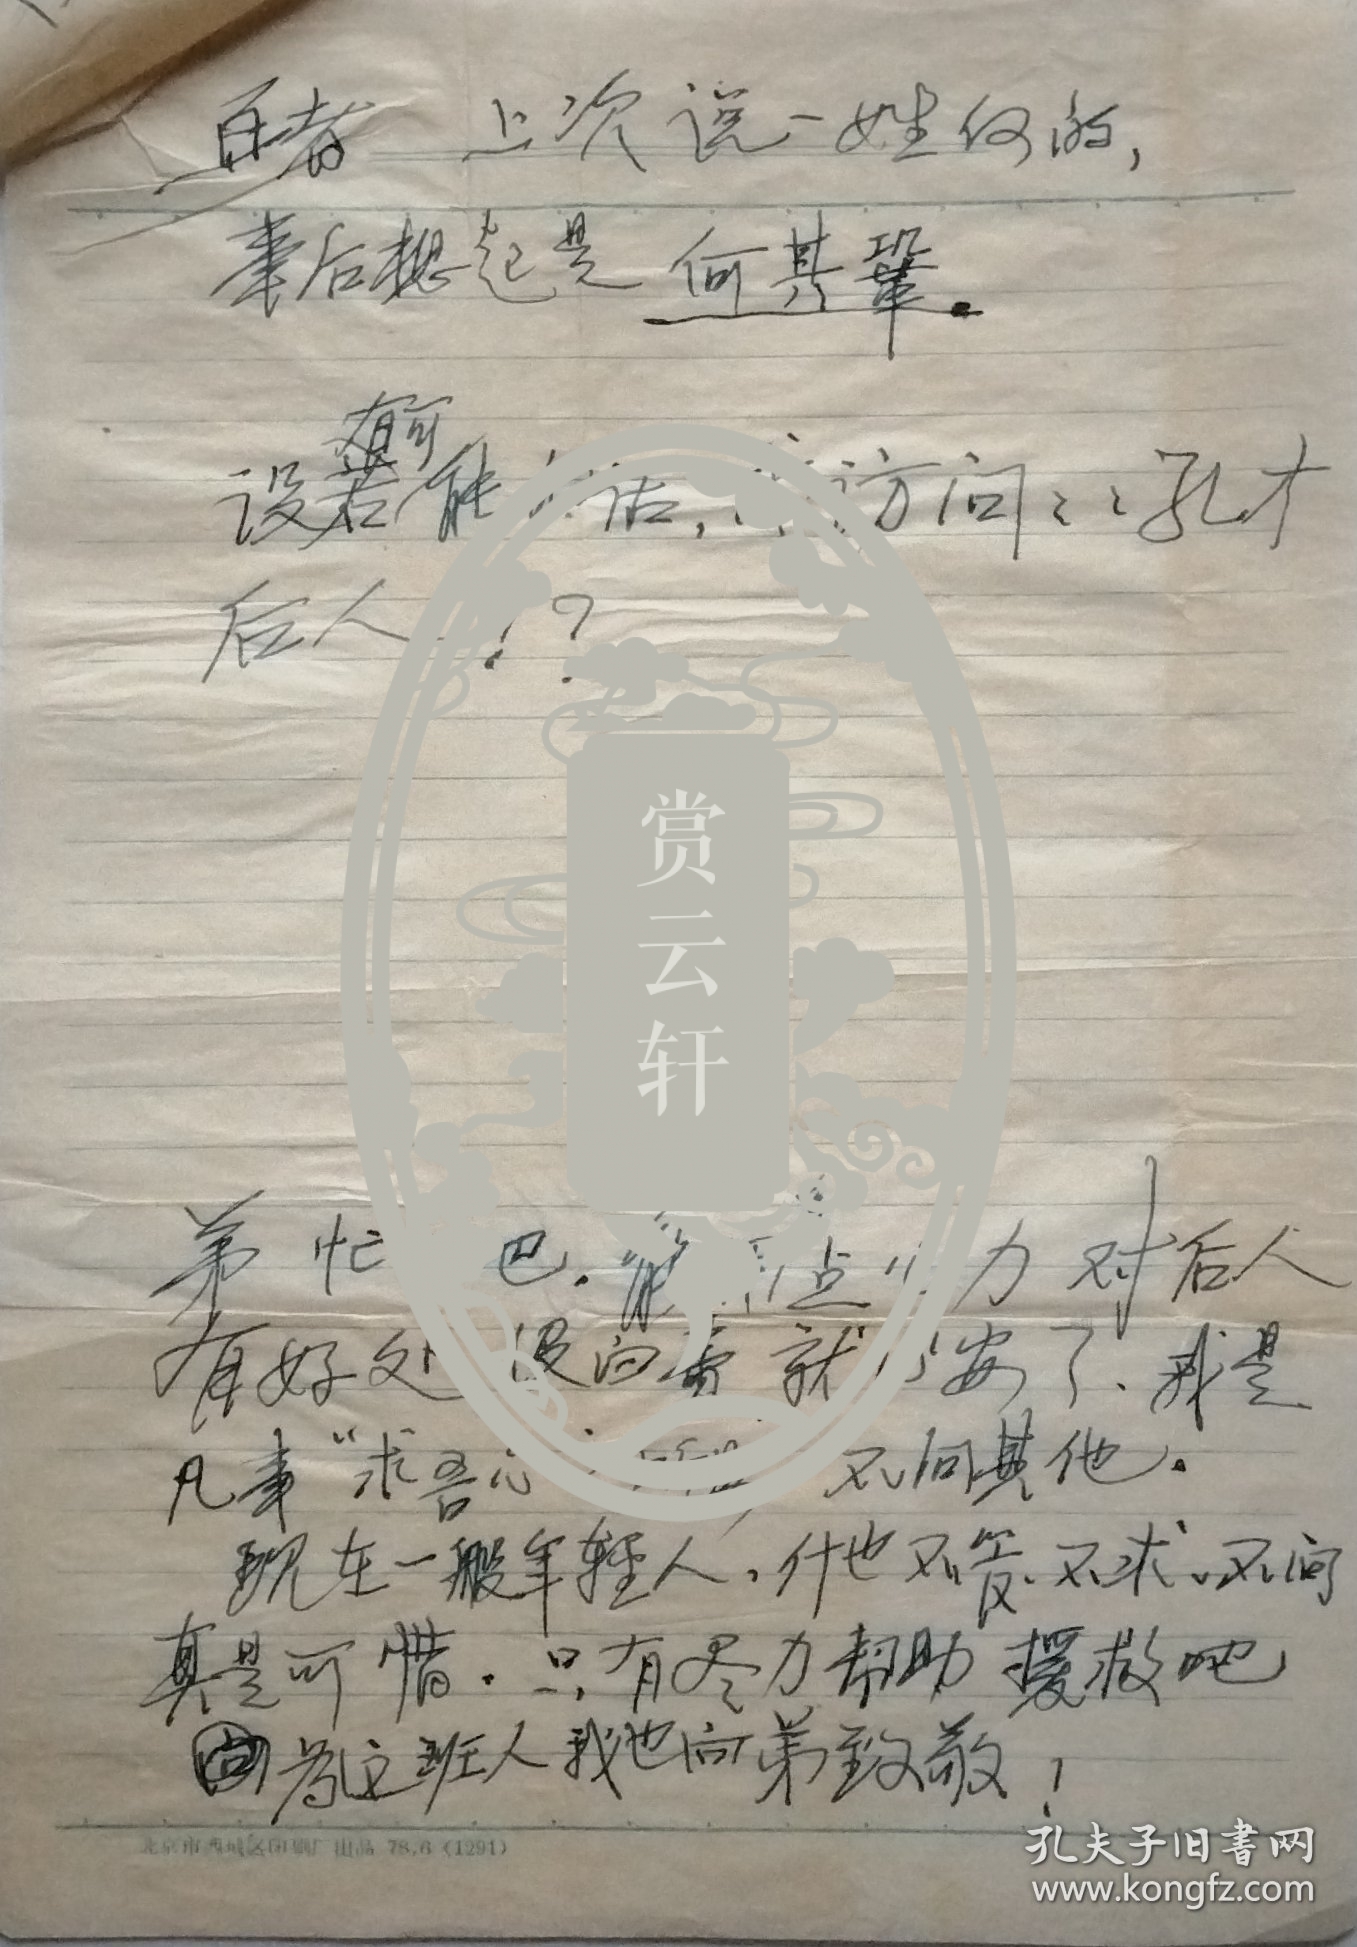 再者 上次说一姓何的,
事后想起是 何其鞏.
有可
设若能 话, 访问 孔才
后人 !?
赏云轩
弟 忙 巴. 能 点 力 对后人
有好处 良心 就 安了、我是
凡事“求吾心 不问其他.
现在一般年轻人, 什也不管、不求、不问
真是可惜. 只有尽力帮助 援救吧
为这班人我也向弟致敬!
北京市西城区印刷厂出品 78.6 (1291)
孔夫子旧书网
www.kongfz.com